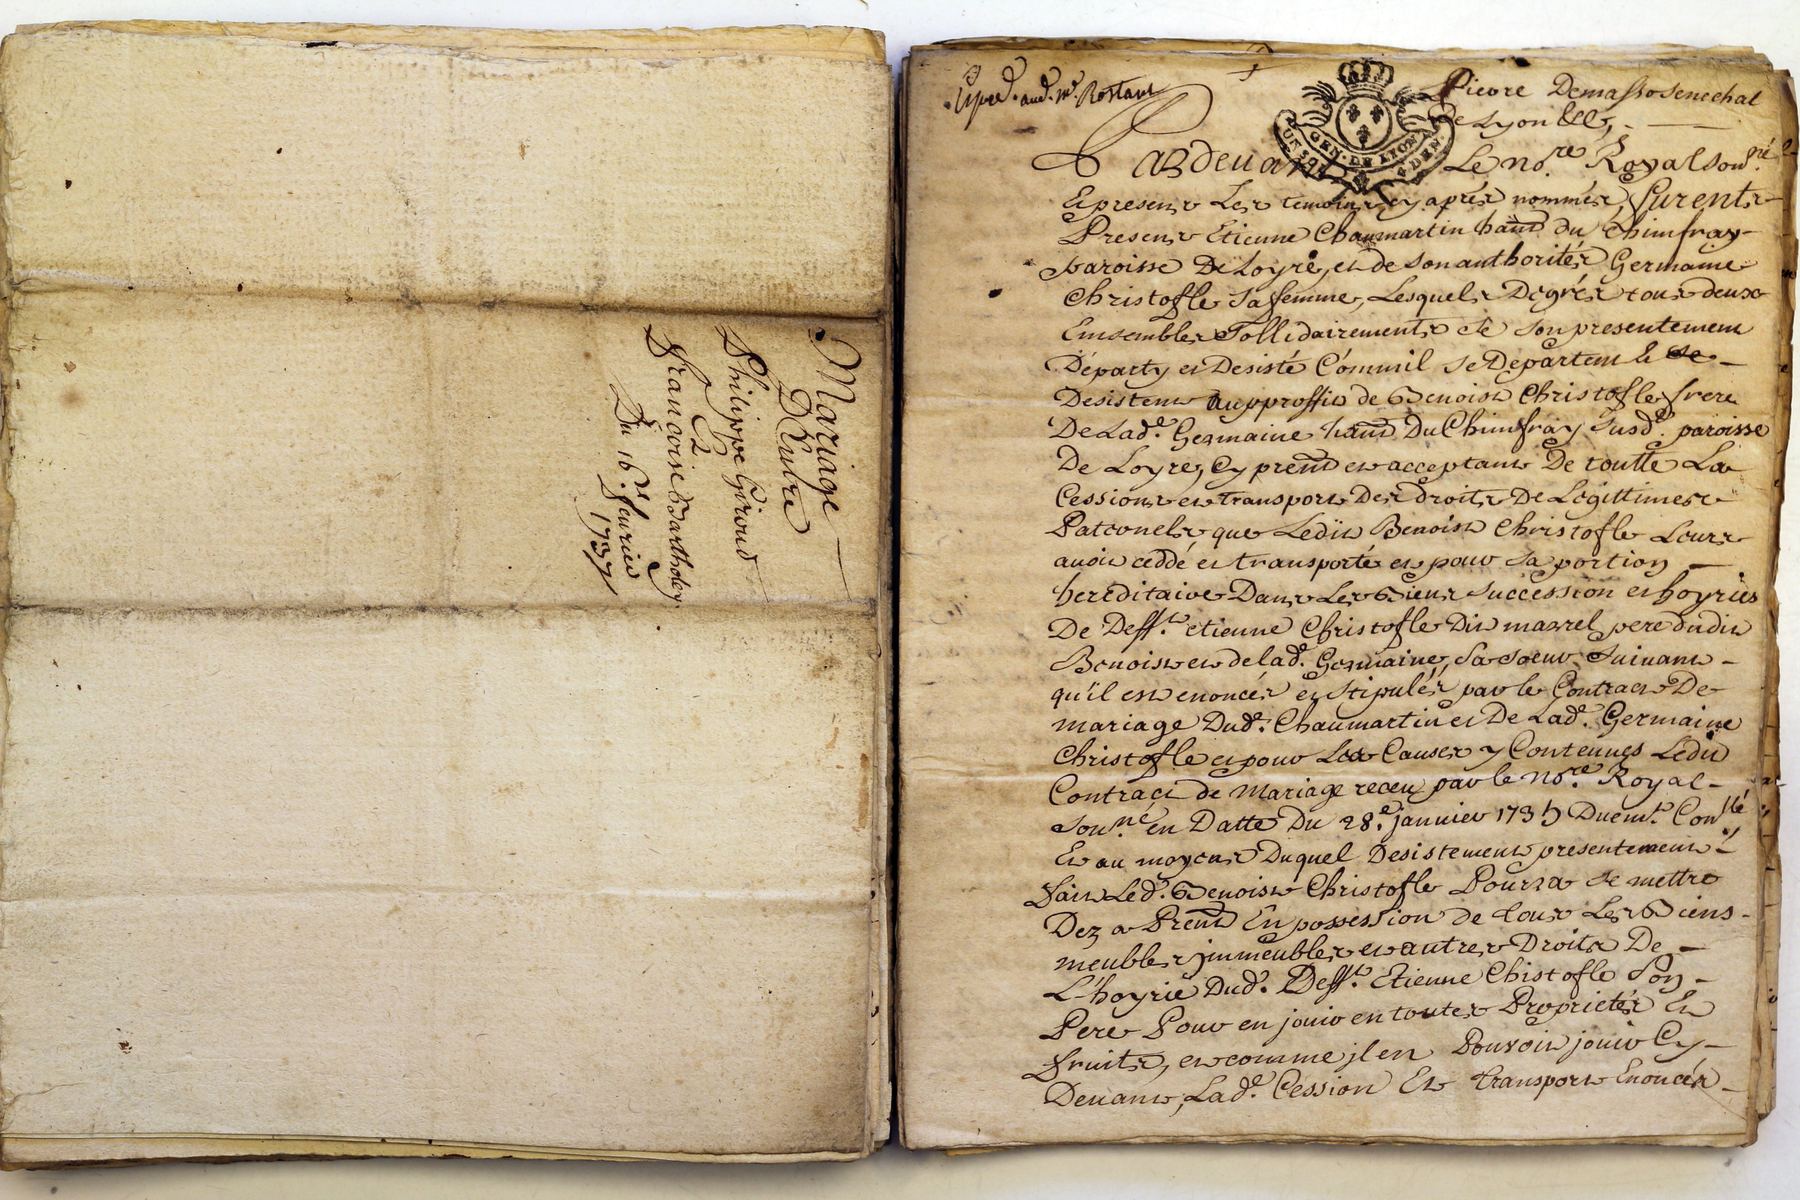 Mariage
D'Entre
Philippe Giroud
Et
Francoise Bartholey
Du 16.e feurier
1737
Exped. aud. me. Rostant
Pierre Demasso senechal
de Lyon &c,
UN SOL
GEN. DE LYON
DEN.
Pardeuant Le nore. Royal souv.ré
Et presens Les temoins cy après nommés, furent
Present Etienne Chaumartin habt du Chimfray
paroisse De Loyre, et de son authorités Germaine
Christofle sa femme, Lesquels Degrés tous deux
Ensembles Sollidairements se son presentement
Departy et Desisté Comm'il se Departent & se
Desistent au proffit de Benoist Christofle frere
De Lade. Germaine habt Du Chimfray susde. paroisse
De Loyre, Cy prent et acceptant De toutte La
Cession et transport Des droits De Legittimes
Paternels que Ledit Benoist Christofle Leurs
auoit ceddé et transporté et pour sa portion
hereditaire Dans Les Biens succession et hoyries
De Defft. etienne Christofle Dit mazrel pere dudit
Benoist et de lade. Germaine, sa soeur suiuant
qu'il est enoncés et stipulés par le Contract De
mariage Dude. Chaumartin et De Lade. Germaine
Christofle et pour Les Causes y Contenues Ledit
Contract de mariage receu par le nore. Royal
sou.né en Datte Du 28.e januier 1735 Duemt. Conllé
Et au moyens Duquel Desistement presentement
fait Led. Benoist Christofle Pourra se mettre
Dez a Prent En possession de tous Les Biens
meubles jmmeubles et autres Droits De
L'hoyrie Dude. Defft. Etienne Chistofle Son
Pere Pour en jouir en toutes Propriétés Et
fruits, et comme jl en Pouvoit jouir Cy
Deuant, Lade. Cession Et transport Enoncés